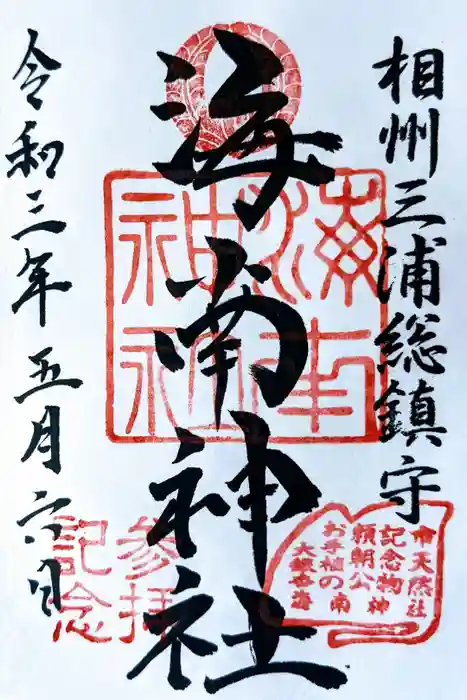 相州三浦総鎮守
海南神社
令和三年五月六日
海南神社
参拝
記念
市天然
記念物
頼朝公
お手植の
大銀杏
海南神社